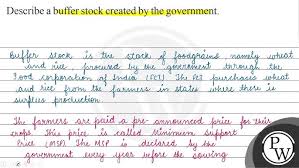 Describe a buffer stock created by the government.
P
W
Buffer stock is the stock of foodgrains namely wheat
and rice procured by the government through the
Food corporation of India (FCI). The FCI purchases wheat
and rice from the farmers in states where there is
surplus production.
The farmers are paid a pre-announced price for their
crops. This price is called Minimum Support
Price (MSP). The MSP is declared by the
government every year before the sowing